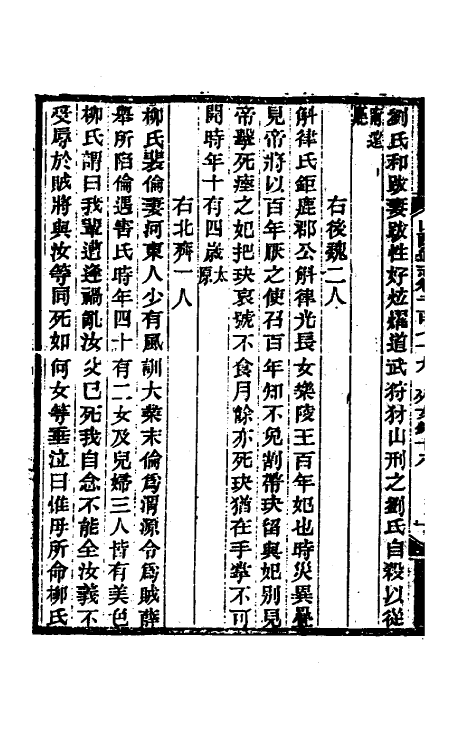 劉氏和跋妻跋性好炫燿道武狩豺山刑之劉氏自殺以從
右後魏二人
斛律氏鉅鹿郡公斛律光長女樂陵王百年妃也時災異疊
見帝將以百年厭之使召百年知不免割帶玦留與妃別見
帝擊死瘞之妃把玦哀號不食月餘亦死玦猶在手拳不可
開時年十有四歲太原
右北齊一人
柳氏裴倫妻河東人少有風訓大業末倫爲渭源令爲賊薛
舉所陷倫遇害柳氏時年四十有二女及兒婦三人皆有美色
柳氏謂曰我輩遭逢禍亂汝父已死我自念不能全汝義不
受辱於賊將與汝等同死如何女等垂泣曰惟毋所命柳氏